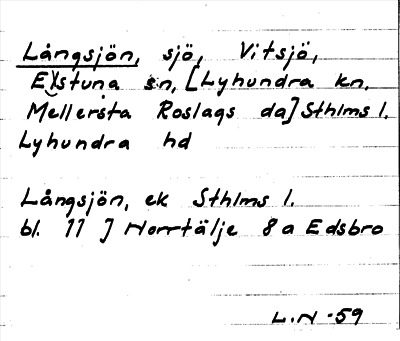 Långsjön, sjö, Vitsjö,
Estuna sn, [Lyhundra kn,
Mellersta Roslags da] Sthlms l.
Lyhundra hd
Långsjön, ek Sthlms l.
bl. 77 ] Norrtälje 8a Edsbro
L.N -59